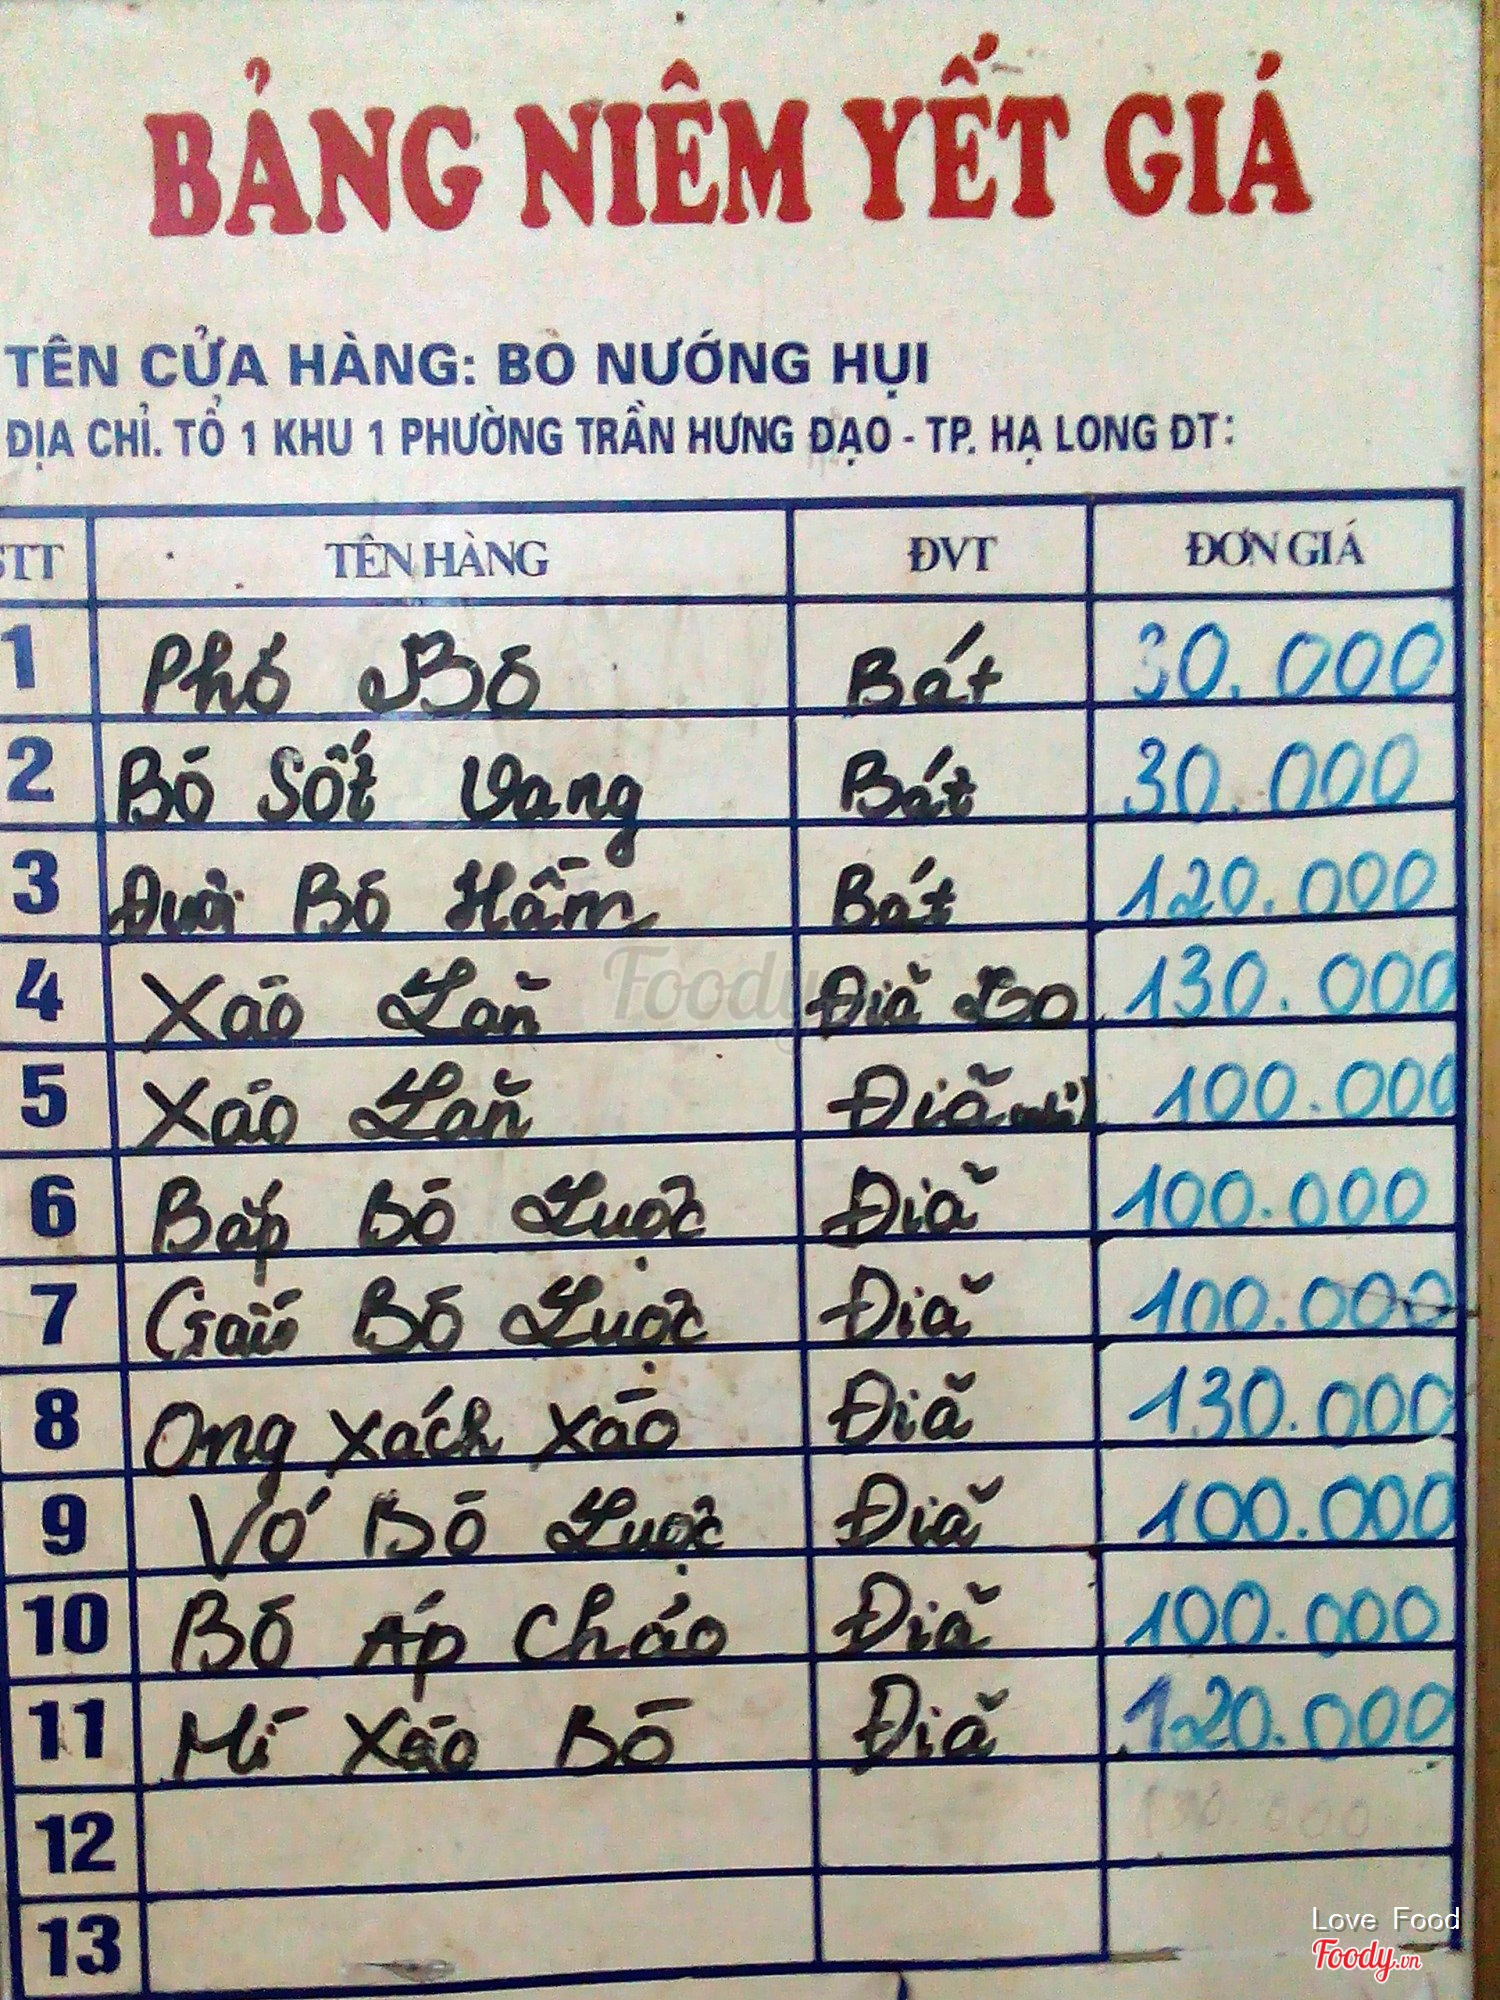 BẢNG NIÊM YẾT GIÁ
TÊN CỬA HÀNG: BÒ NƯỚNG HỤI
ĐỊA CHỈ. TỔ 1 KHU 1 PHƯỜNG TRẦN HƯNG ĐẠO - TP. HẠ LONG ĐT:
STT TÊN HÀNG ĐVT ĐƠN GIÁ
1 Phở Bò Bát 30.000
2 Bò Sốt Vang Bát 30.000
3 Đuôi Bò Hầm Bát 120.000
4 Xào Lăn Đĩa Bo 130.000
5 Xào Lăn Đĩa 100.000
6 Bắp Bò Luộc Đĩa 100.000
7 Gầu Bò Luộc Đĩa 100.000
8 Ong Xách Xào Đĩa 130.000
9 Vó Bò Luộc Đĩa 100.000
10 Bò Áp Chảo Đĩa 100.000
11 Mì Xào Bò Đĩa 120.000
12 130.000
13
Foody
Love Food
Foody.vn